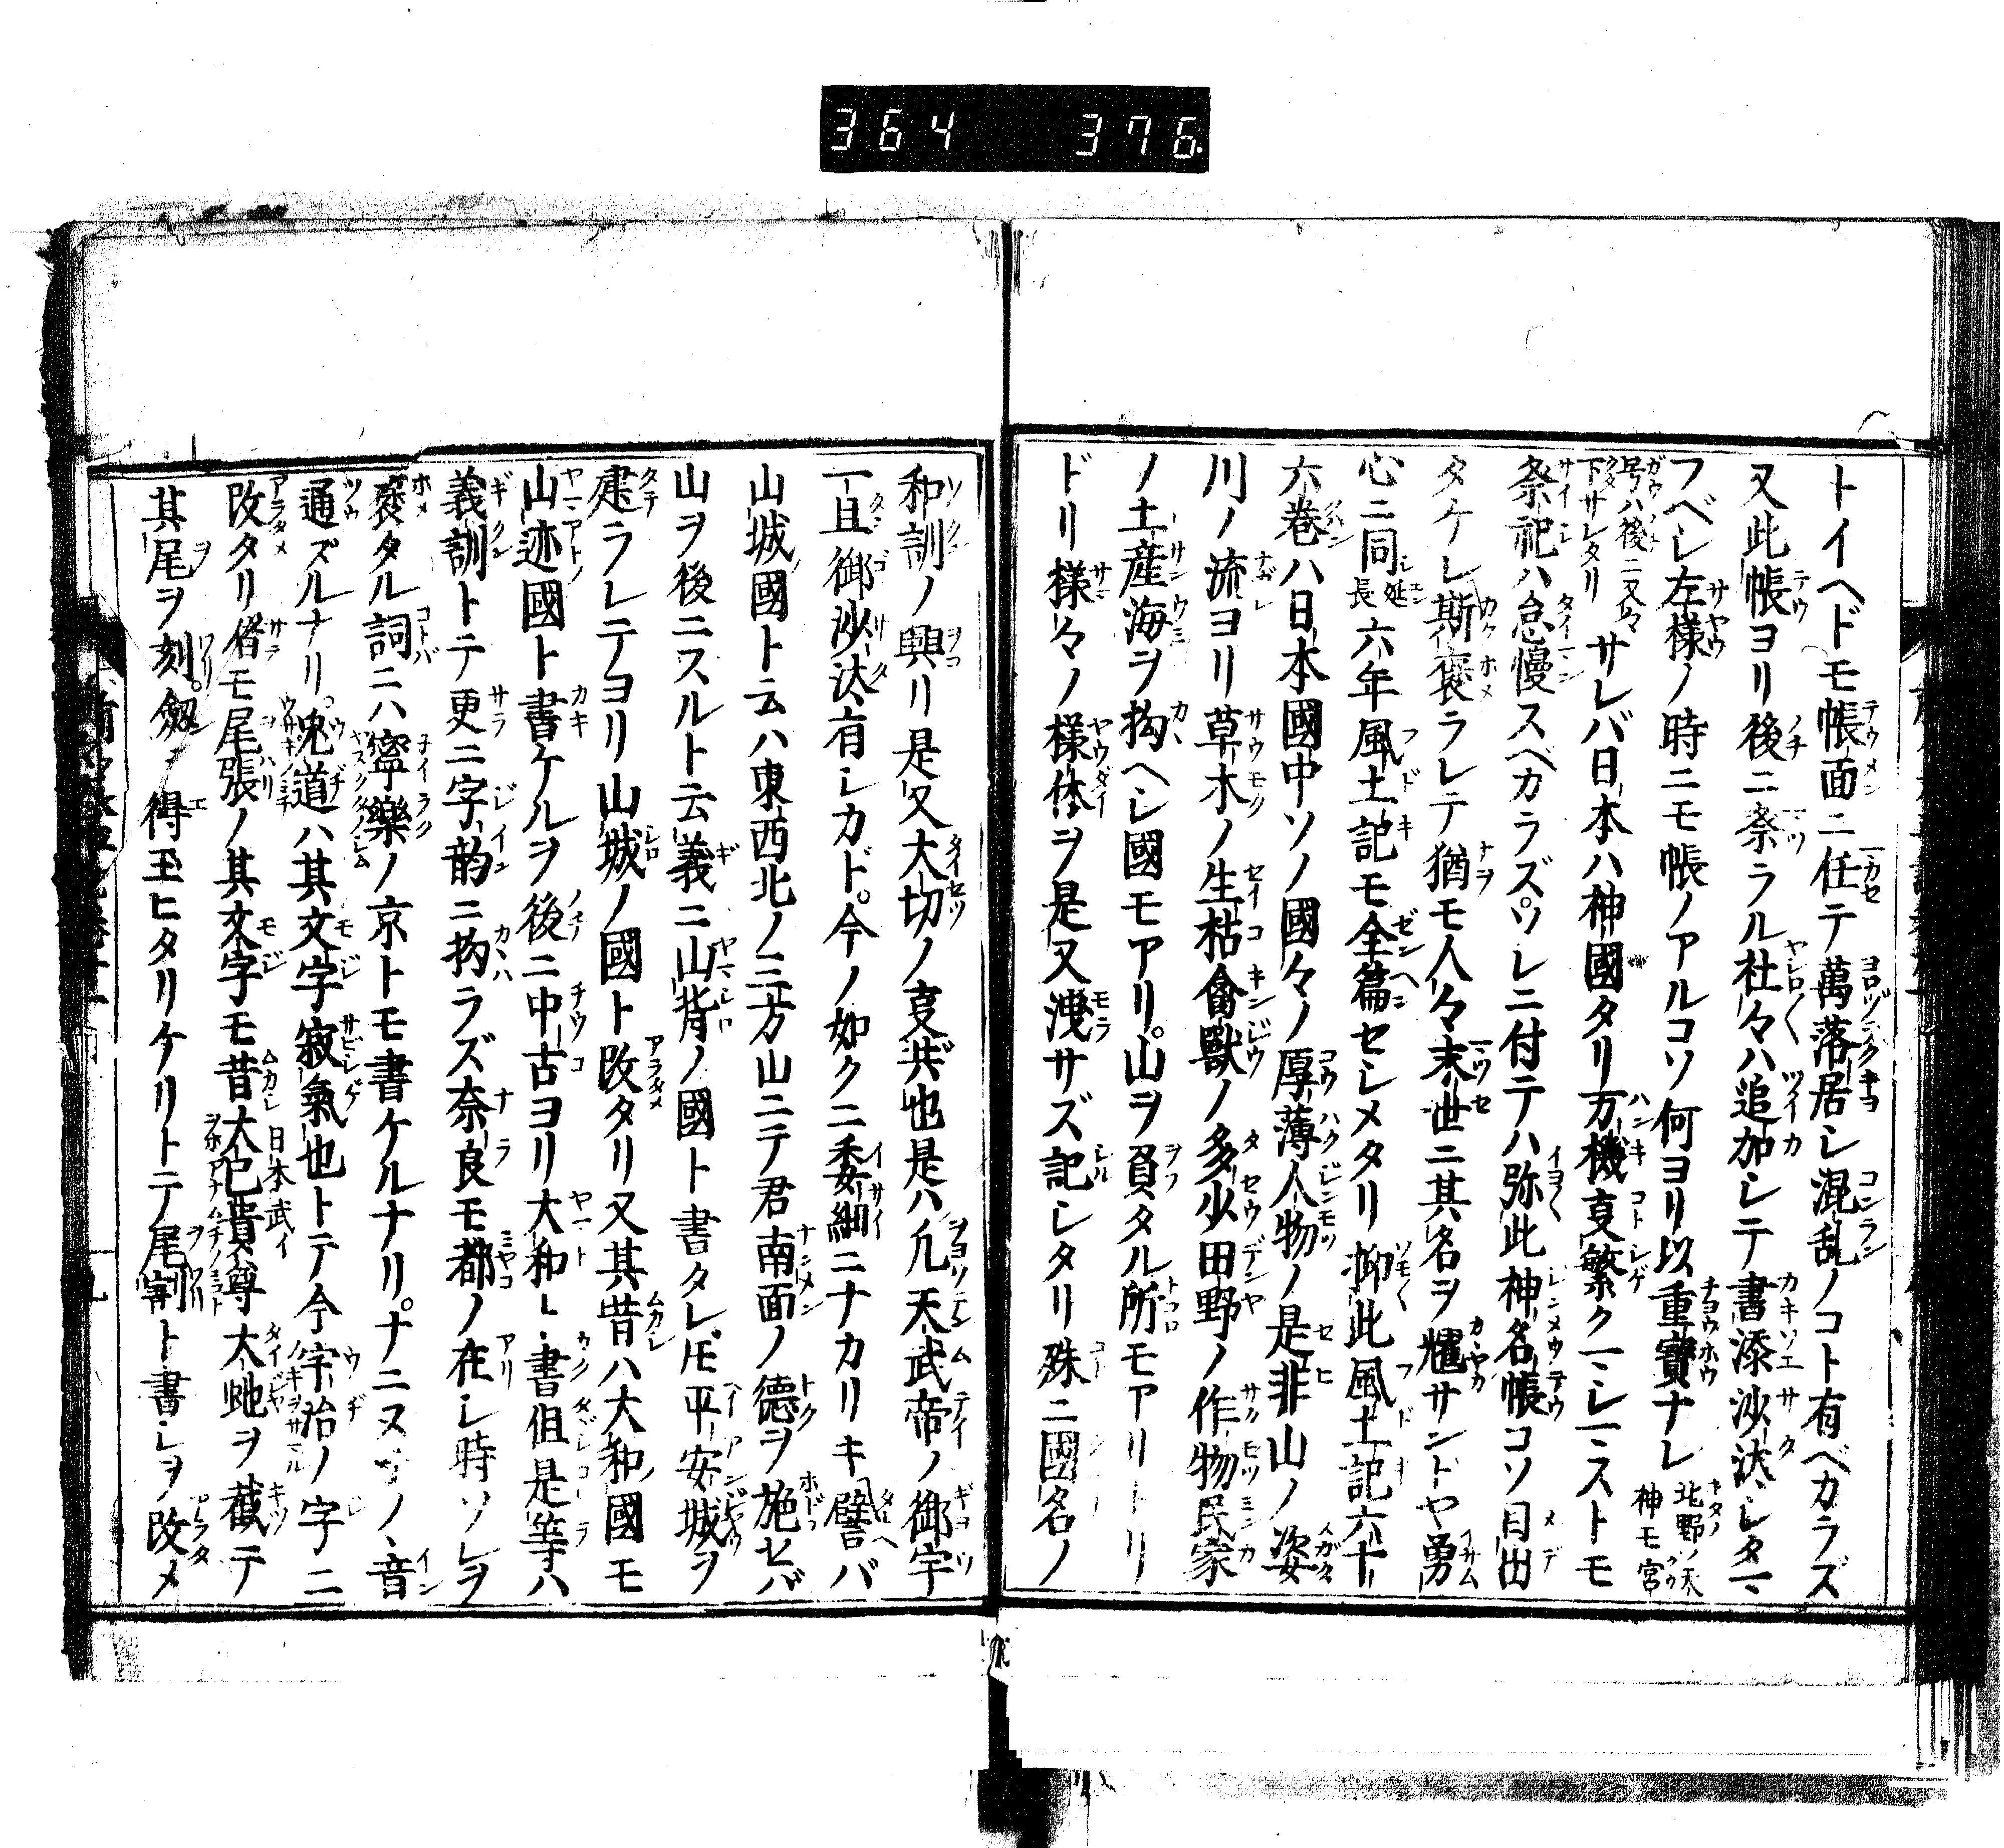 364 376
トイヘドモ帳面ニ任テ萬落居シ混乱ノコト有ベカラズ
又此帳ヨリ後ニ祭ラル社々ハ追加シテ書添沙汰シタマ
フベシ左様ノ時ニモ帳ノアルコソ何ヨリ以重寶ナレ北野ノ天神モ宮
号ハ後ニ又々下サレタリサレバ日本ハ神國タリ万機叓繁クマシマストモ
祭祀ハ怠慢スベカラズソレニ付テハ弥此神名帳コソ目出
タケレ斯褒ラレテ猶モ人々末世ニ其名ヲ耀サントヤ勇
心ニ同シ延長六年風土記モ全篇セシメタリ抑此風土記六十
六巻ハ日本國中ソノ國々ノ厚薄人物ノ是非山ノ姿
川ノ流ヨリ草木ノ生枯禽獸ノ多少田野ノ作物民家
ノ土産海ヲ拘ヘシ國モアリ山ヲ負タル所モアリトリ
ドリ様々ノ様体ヲ是又洩サズ記シタリ殊ニ國名ノ
和訓ノ興リ是又大切ノ叓共也是ハ凢天武帝ノ御宇
一旦御沙汰有シカド今ノ如クニ委細ニナカリキ譬バ
山城國ト云ハ東西北ノ三方山ニテ君南面ノ德ヲ施セバ
山ヲ後ニスルト云義ニ山背ノ國ト書タレ𪜈平安城ヲ
建ラレテヨリ山城ノ國ト改タリ又其昔ハ大和ノ國モ
山迹國ト書ケルヲ後ニ中古ヨリ大和ト書但是等ハ
義訓トテ更ニ字韵ニ拘ラズ奈良モ都ノ在シ時ソレヲ
褒タル詞ニハ寧樂ノ京トモ書ケルナリナニヌネノノ音
通ズルナリ兎道ハ其文字寂氣也トテ今宇治ノ字ニ
改タリ偖モ尾張ノ其文字モ昔大己貴尊大虵ヲ截テ
其尾ヲ刻劔ヲ得玉ヒタリケリトテ尾割ト書シヲ改メ